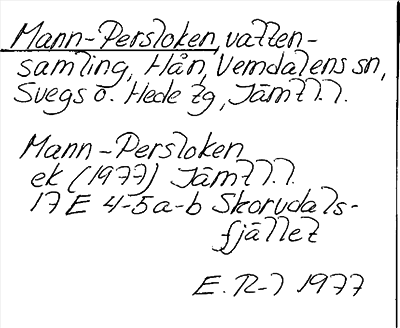 Mann-Persloken, vatten-
samling, Hån, Vemdalens sn,
Svegs o. Hede tg, Jämtl.l.
Mann-Persloken
ek (1977) Jämtl.l.
17E 4-5a-b Skorvdals-
fjället
E. R-l 1977